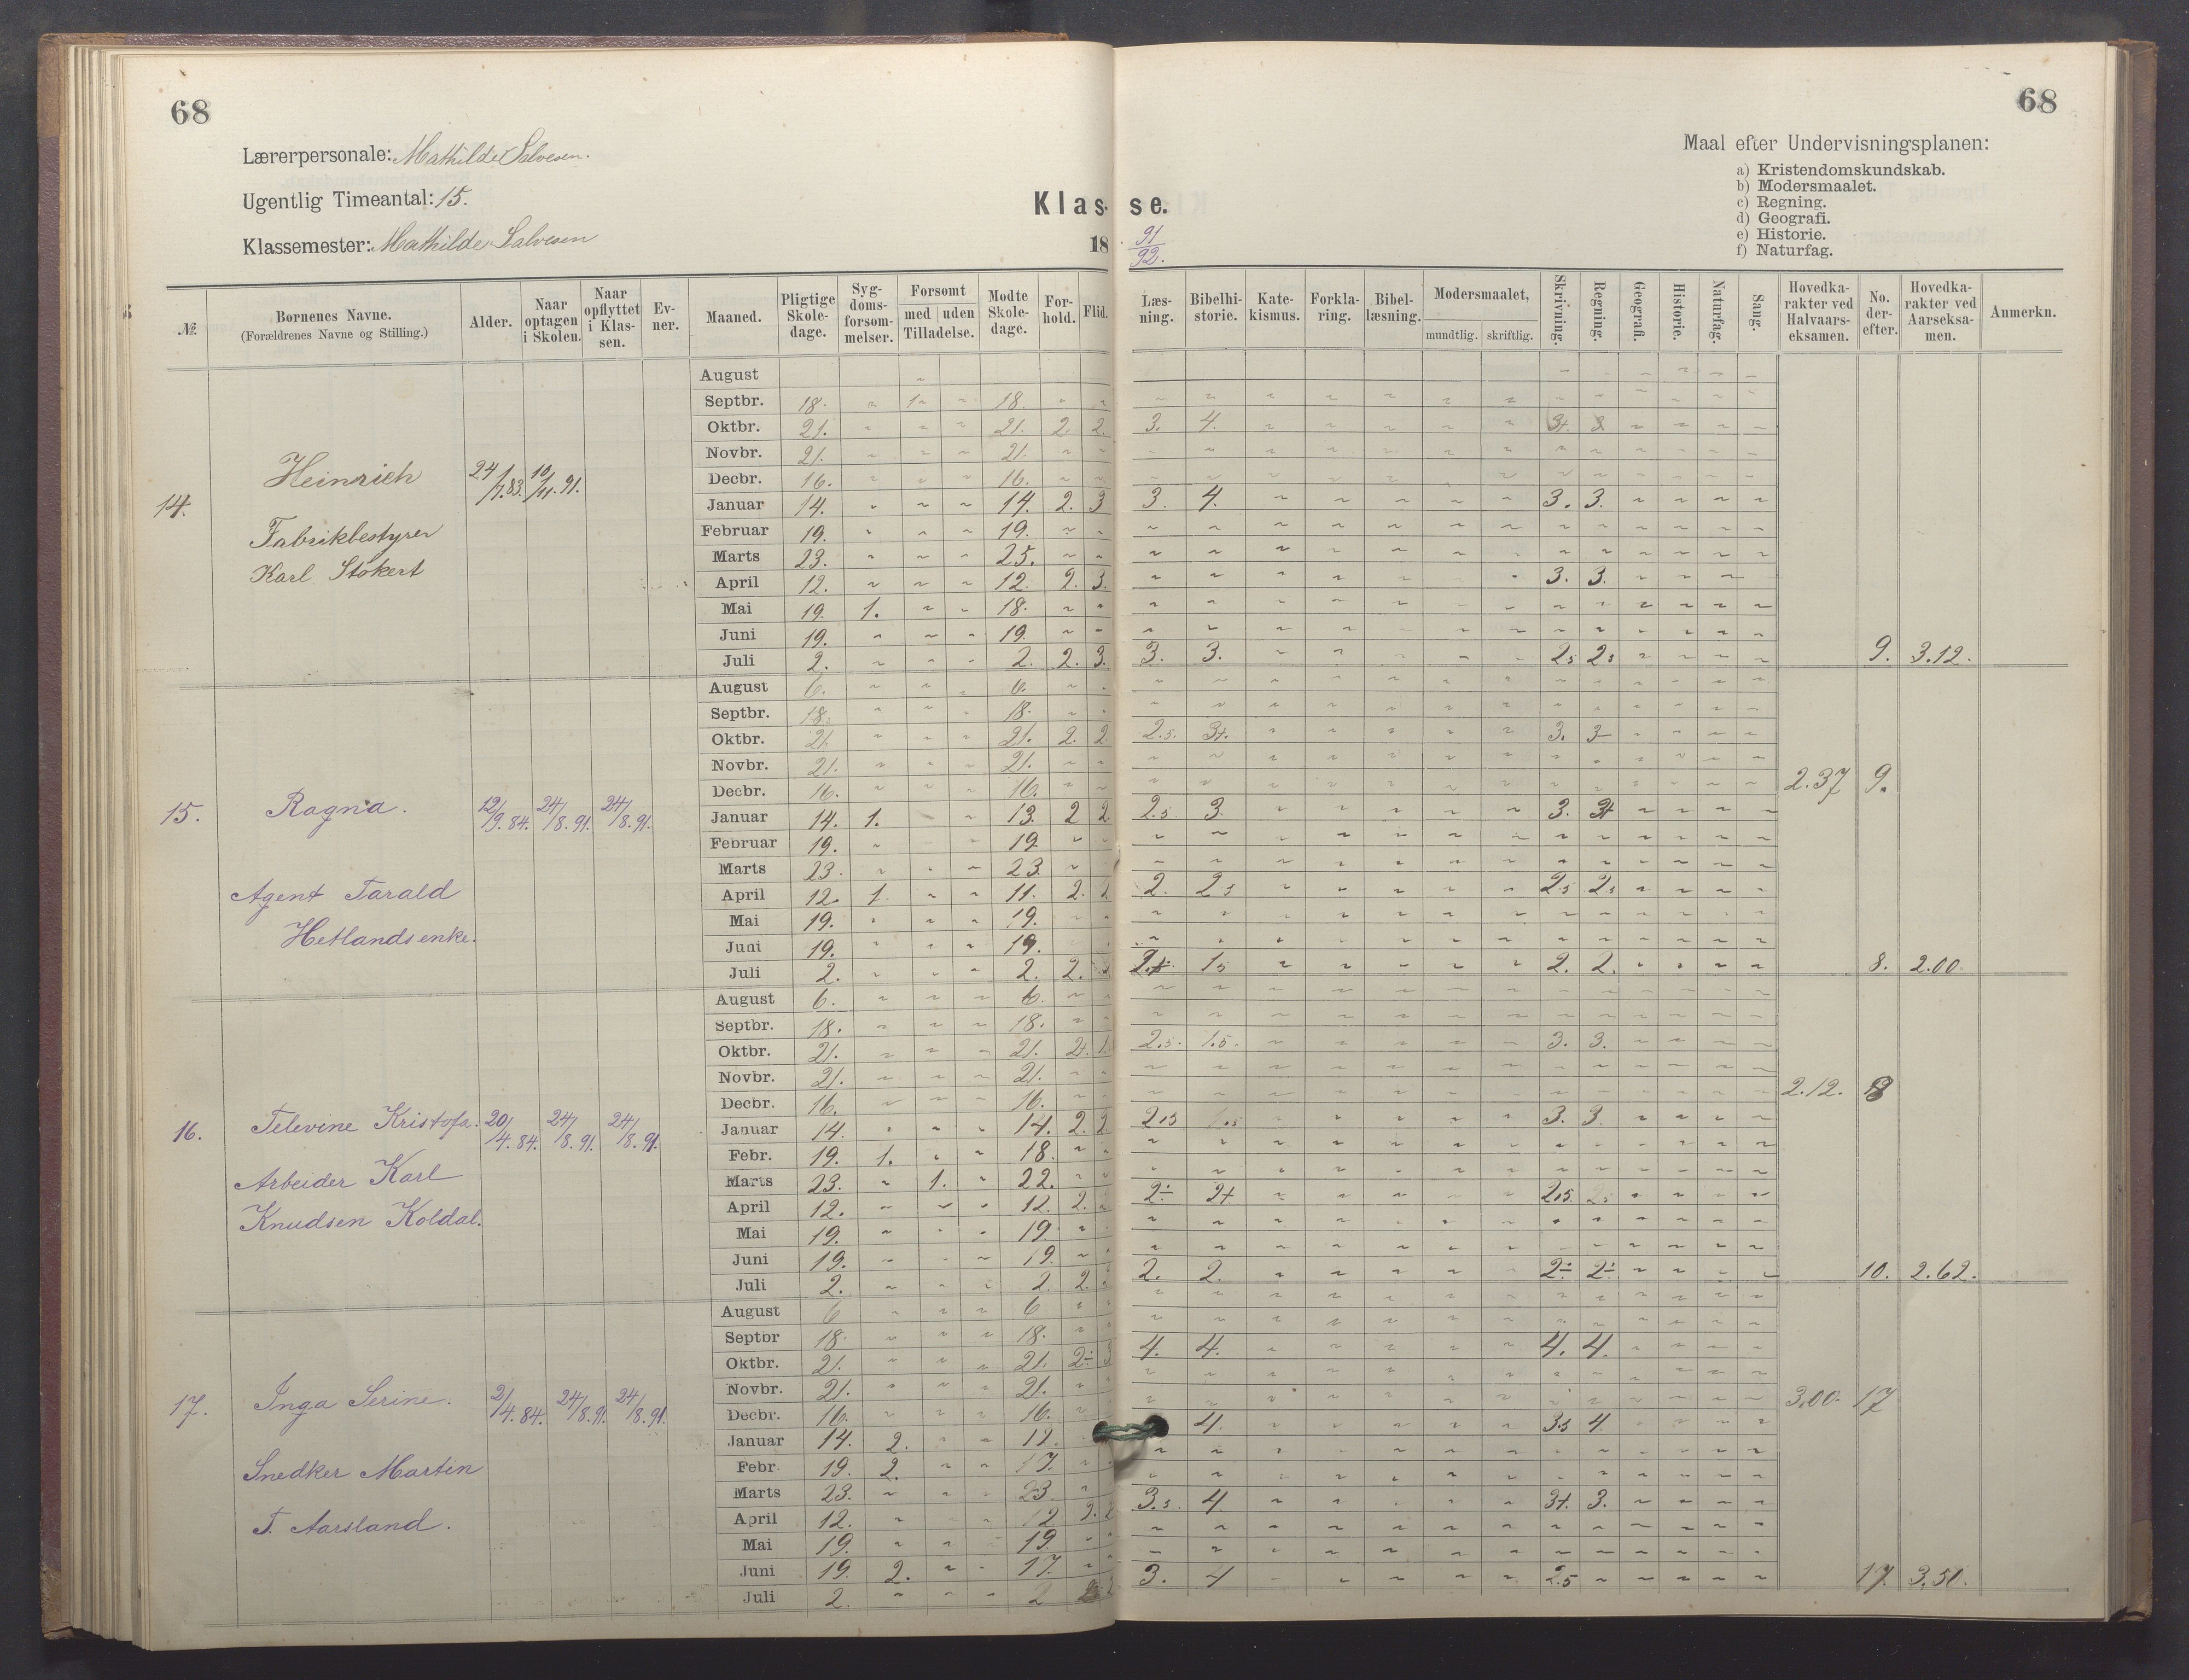 68
68
Lærerpersonale: Mathilde Salvesen.
Ugentlig Timeantal: 15.
Klassemester: Mathilde Salvesen
Klasse.
18 91/92.
Maal efter Undervisningsplanen:
a) Kristendomskundskab.
b) Modersmaalet.
c) Regning.
d) Geografi.
e) Historie.
f) Naturfag.
№. Børnenes Navne. (Forældrenes Navne og Stilling.) Alder. Naar optagen i Skolen. Naar opflyttet i Klassen. Evner. Maaned. Pligtige Skoledage. Sygdomsforsømmelser. Forsømt med uden Tilladelse. Mødte Skoledage. Forhold. Flid. Læsning. Bibelhistorie. Katekismus. Forklaring. Bibellæsning. Modersmaalet, mundtlig. skriftlig. Skrivning. Regning. Geografi. Historie. Naturfag. Sang. Hovedkarakter ved Halvaarseksamen. No. derefter. Hovedkarakter ved Aarseksamen. Anmerkn.
14. Heinrich 24/7.83. 10/11.91.
Fabrikbestyrer
Karl Stokert
August
Septbr. 18. 18.
Oktbr. 21. 21. 2. 2. 3. 4.
Novbr. 21. 21.
Decbr. 16. 16.
Januar 14. 14. 2. 3 3. 4. 3. 3.
Februar 19. 19.
Marts 23. 23.
April 12. 12. 2. 3. 3. 3.
Mai 19. 1. 18.
Juni 19. 19.
Juli 2. 2. 2. 3. 3. 3. 2.5 2.5 9. 3.12.
15. Ragna. 12/9.84. 24/8.91. 24/8.91.
Agent Tarald
Hetlands enke.
August 6. 6.
Septbr. 18. 18.
Oktbr. 21 21. 2. 2 2.5. 3+. 3. 3
Novbr. 21. 21.
Decbr. 16. 16. 2.37 9.
Januar 14. 1. 13. 2 2 2.5 3. 3. 3+
Februar 19. 19
Marts 23. 23.
April 12. 1. 11. 2. 2 2. 2.5 2.5 2.5
Mai 19. 19.
Juni 19. 19.
Juli 2. 2. 2. 1.5 2. 2. 8. 2.00
16. Televine Kristofa. 20/4.84. 24/8.91. 24/8.91.
Arbeider Karl
Knudsen Koldal.
August 6. 6.
Septbr. 18. 18.
Oktbr. 21. 21. 2+. 1. 2.5. 1.5. 3. 3.
Novbr. 21. 21.
Decbr. 16. 16. 2.12. 8
Januar 14. 14. 2. 2. 2.5 1.5 3. 3.
Febr. 19. 1. 18.
Marts 23. 1. 22.
April 12. 12. 2. 2÷ 2+ 2.5 2.5
Mai 19. 19
Juni 19. 19.
Juli 2. 2. 2. 2. 2. 2÷ 2÷ 10. 2.62.
17. Inga Serine. 2/4.84. 24/8.91. 24/8.91.
Snedker Martin
T. Aarsland.
August 6 6
Septbr 18. 18.
Oktbr. 21. 21. 2÷ 3 4. 4. 4. 4.
Novbr. 21. 21.
Decbr. 16. 16. 3.00. 17
Januar 14. 2. 12. 4. 3.5 4.
Febr. 19. 2. 17.
Marts 23. 23.
April 12. 12 2. 3.5. 4 3+. 3.
Mai 19. 19.
Juni 19. 2. 17.
Juli 2. 2 3. 4 2.5 17. 3.50.